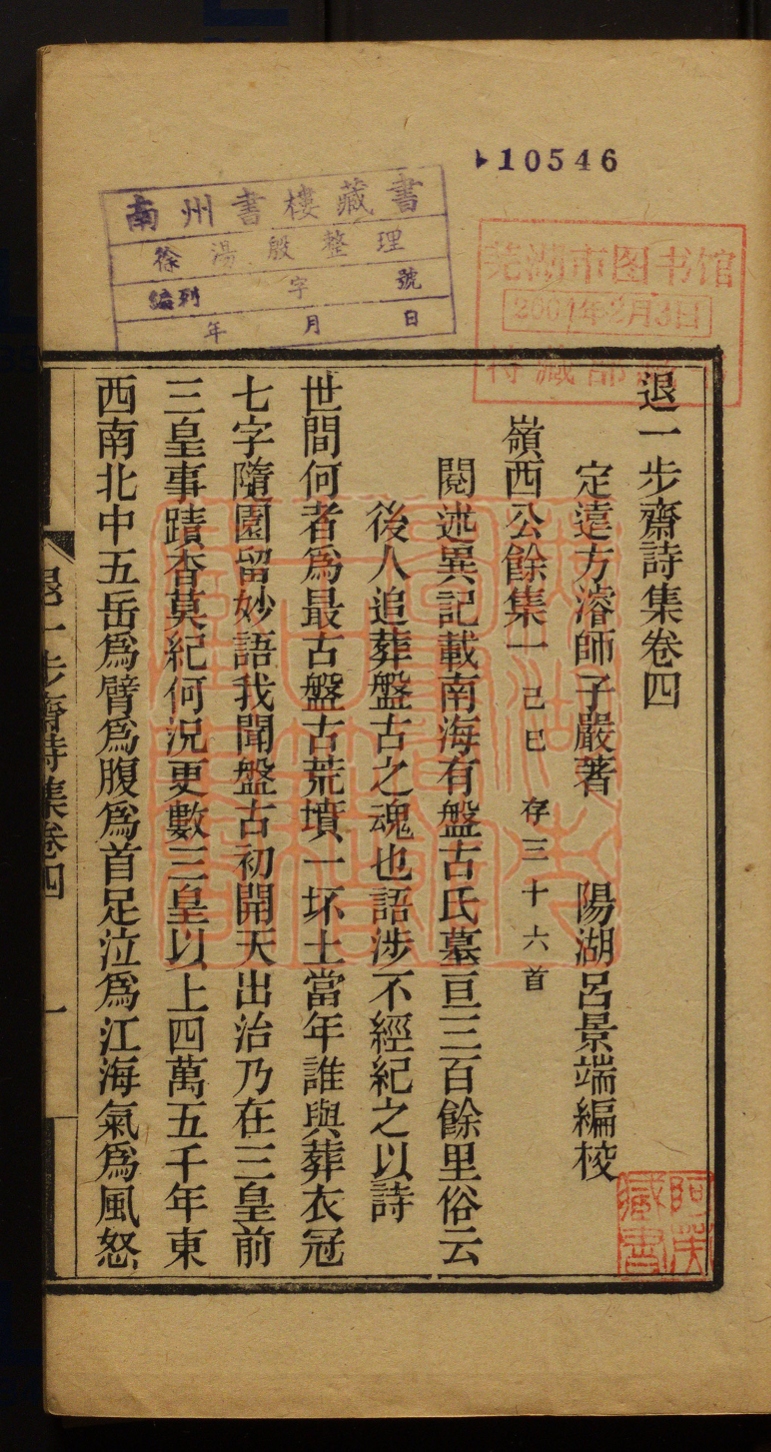 10546
南州書樓藏書
徐湯殷整理
編列 字 號
年 月 日
芜湖市图书馆
2001年2月3日
特藏部
退一步齋詩集卷四
定遠方濬師子嚴著 陽湖呂景端編校
嶺西公餘集一 己巳 存三十六首
閱述異記載南海有盤古氏墓亘三百餘里俗云
後人追葬盤古之魂也語涉不經紀之以詩
世間何者爲最古盤古荒墳一坏土當年誰與葬衣冠
七字隨園留妙語我聞盤古初開天出治乃在三皇前
三皇事蹟杳莫紀何況更數三皇以上四萬五千年東
西南北中五岳爲臂爲腹爲首足泣爲江海氣爲風怒
退一步齋詩集卷四
一
藏書